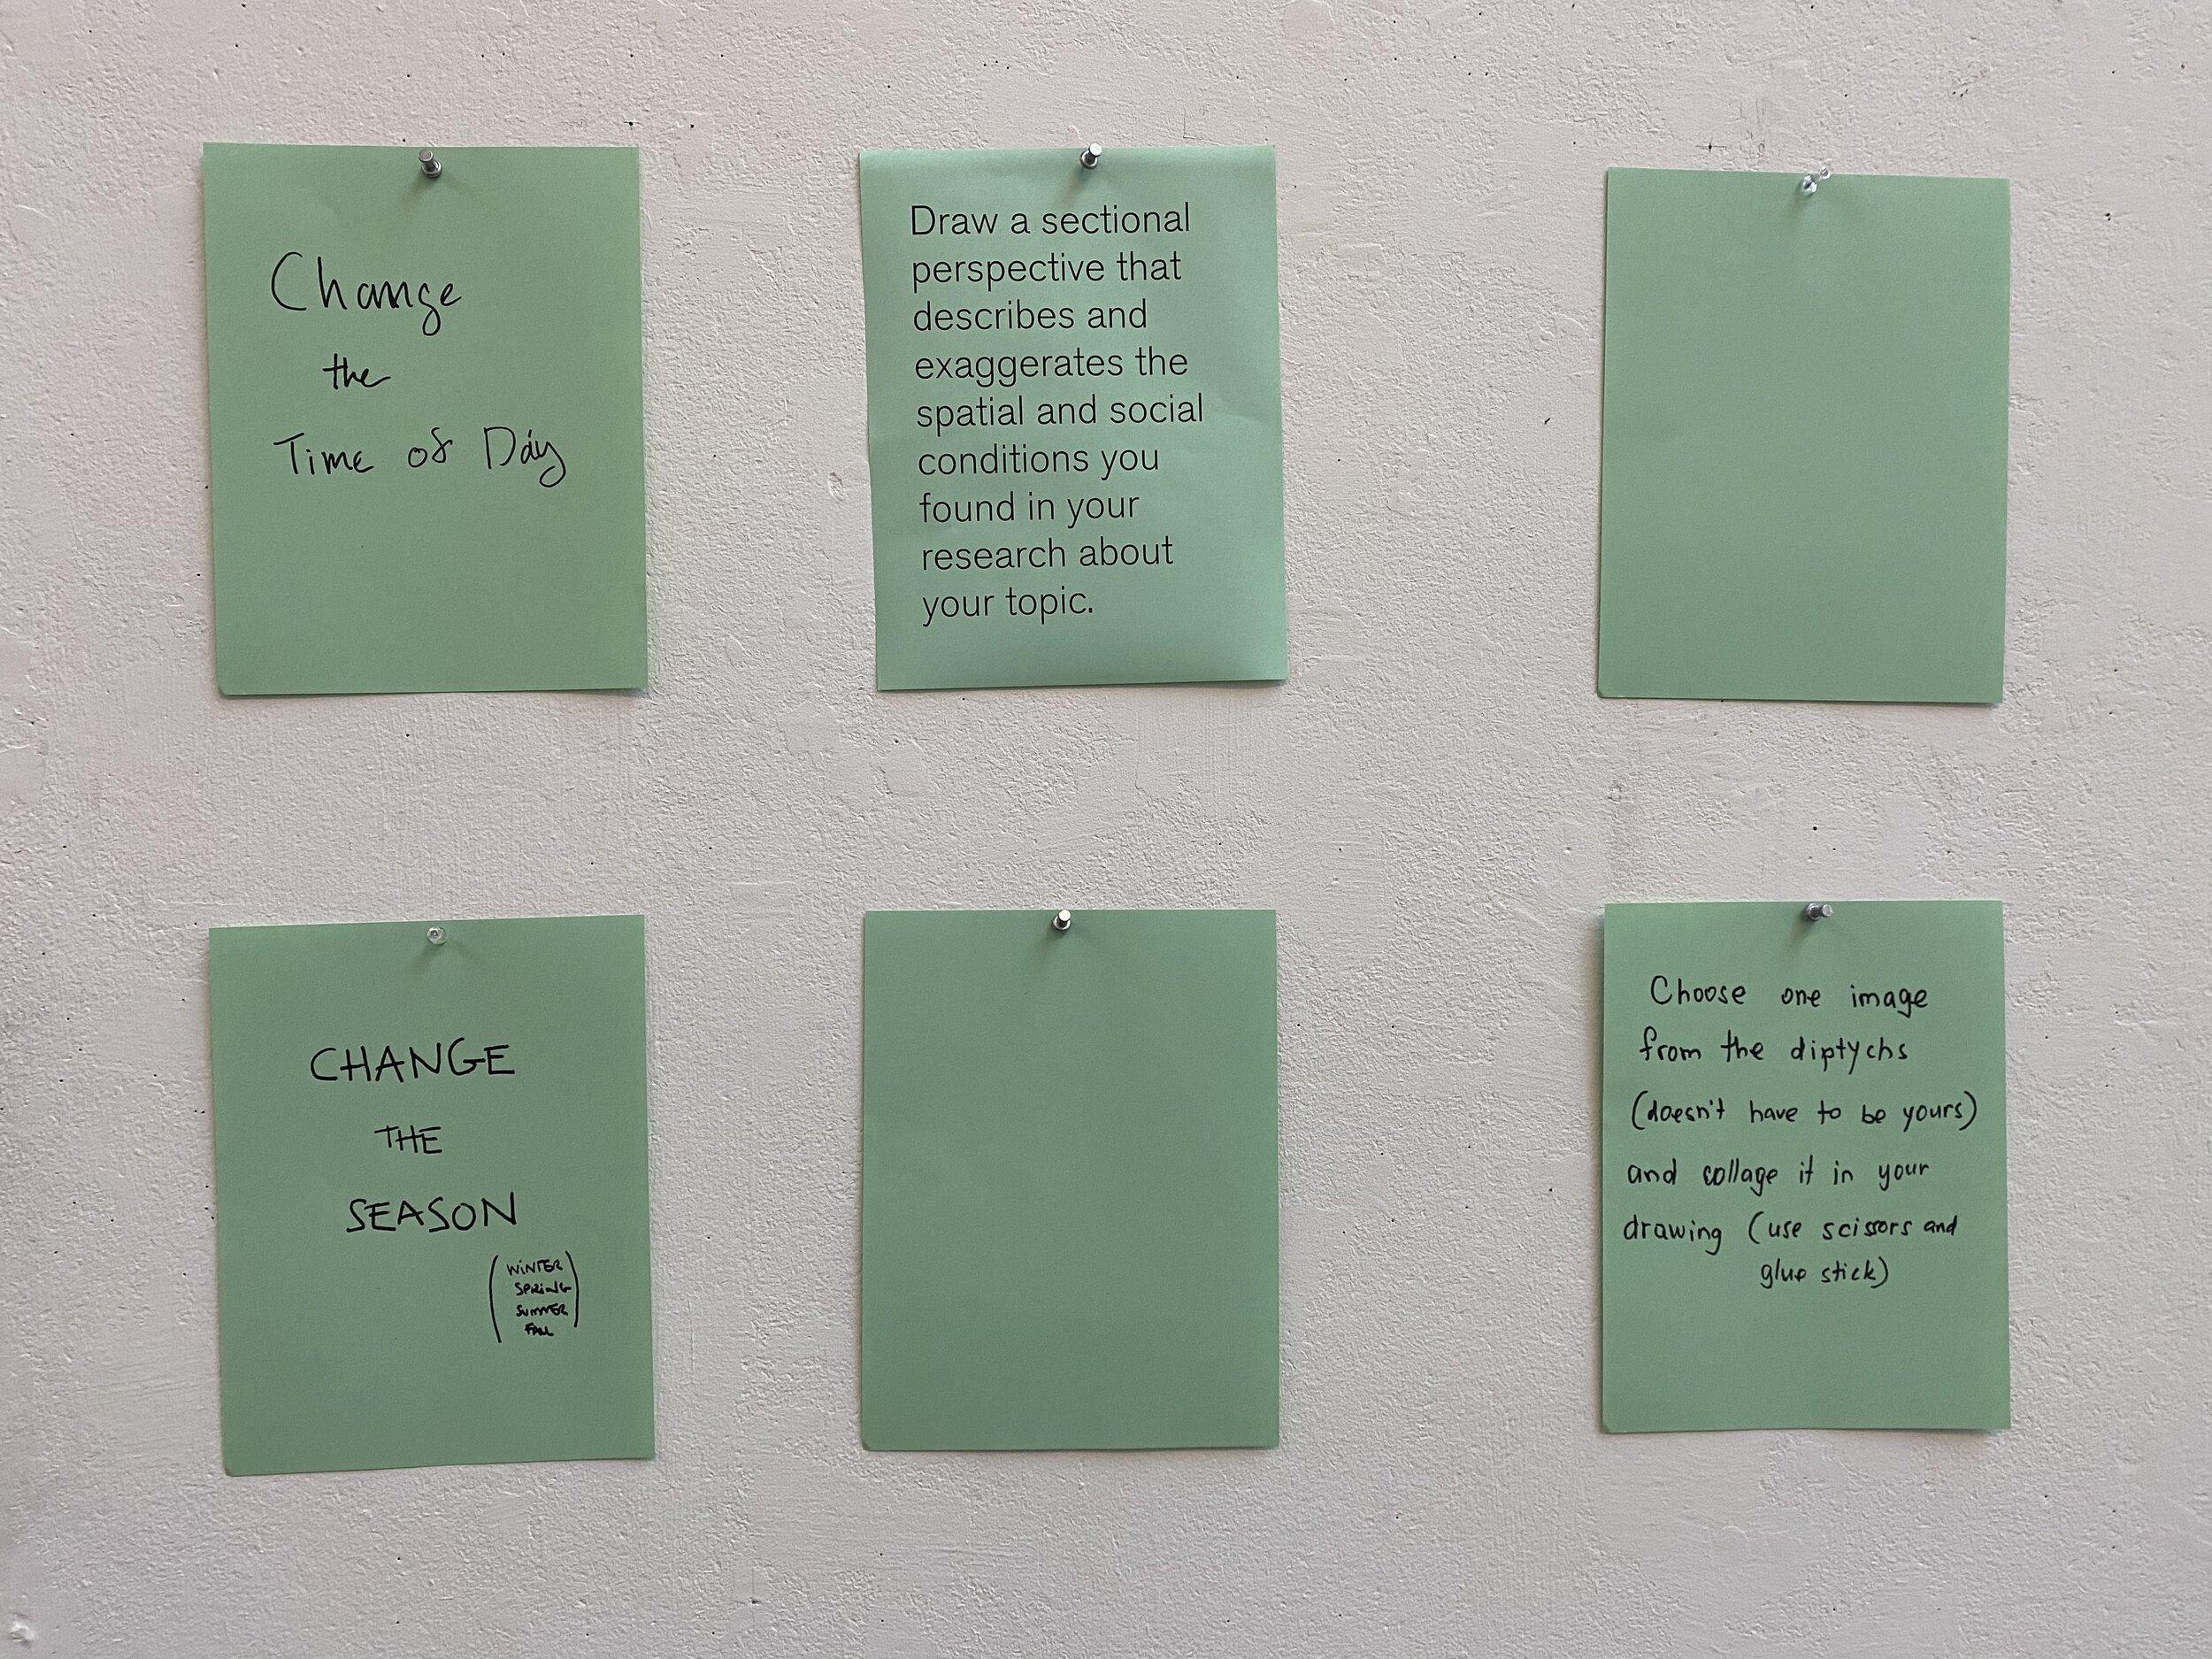 Change
the
Time of Day
Draw a sectional
perspective that
describes and
exaggerates the
spatial and social
conditions you
found in your
research about
your topic.
CHANGE
THE
SEASON
(WINTER
SPRING
SUMMER
FALL)
Choose one image
from the diptychs
(doesn't have to be yours)
and collage it in your
drawing (use scissors and
glue stick)